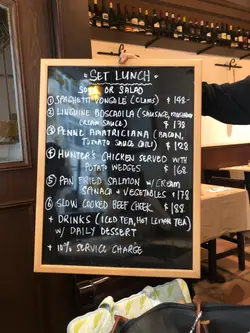 SET LUNCH
SOUP OR SALAD
① SPAGHETTI VONGOLE (CLAMS) $148
② LINGUINE BOSCAOILA (SAUSAGE, MUSHROOM
CREAM SAUCE) $138
③ PENNE AMATRICIANA (BACON,
TOMATO SAUCE CHILI) $128
④ HUNTER'S CHICKEN SERVED WITH
POTATO WEDGES $168
⑤ PAN FRIED SALMON W/CREAM
SPINACH & VEGETABLES $178
⑥ SLOW COOKED BEEF CHEEK $188
+ DRINKS (ICED TEA, HOT LEMON TEA)
W/ DAILY DESSERT
+ 10% SERVICE CHARGE